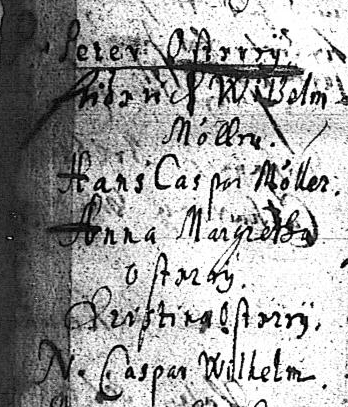 Peter Ostrrÿ
Fridrich Wilhelm
Möllrr.
Hans Caspar Möller.
Anna Margretha
Ostarrÿ.
Christina Ostarrÿ.
N. Caspar Wilhelm